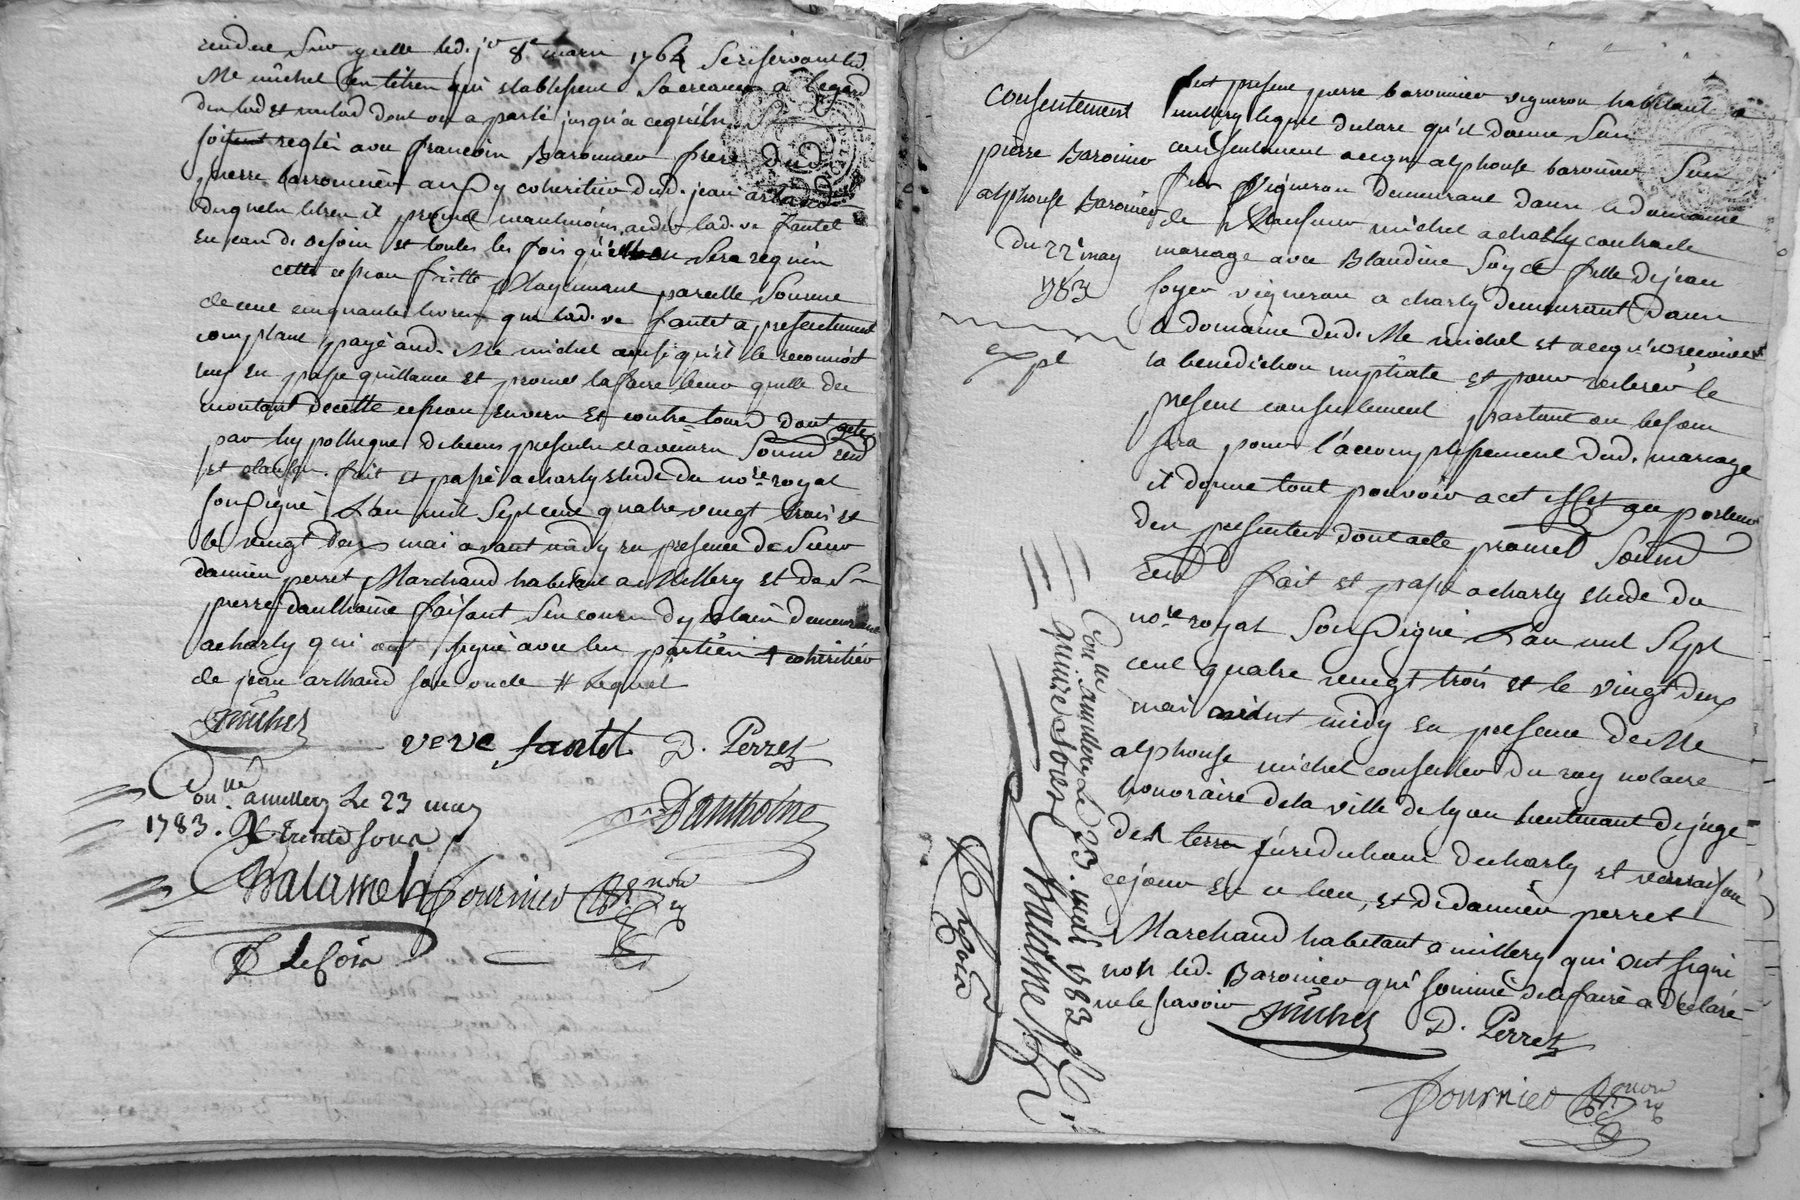 rendue sur icelle led. jr 8e mars 1764 se réservant led.
Me michel les titres qui etablissent sa creance a legard
dud.
soient reglés avec francois Baronnier frere dud.
pierre barronnier aussy coheritier dud. jean arthaud
duquels titres il promet neantmoins aider lad. ve fantet
en jean de besoin et toutes les fois qu'il en sera requis
cette cession faitte moyennant pareille somme
de cent cinquante livres que lad. ve fantet a presentement
comptant payé aud. Me michel ainsi qu'il le reconnoit
en passe quittance et promet la faire tenir quitte du
montant de cette cession envers et contre tous dont acte
par hypotheque de biens presents et avenirs soumis ren
et clauses. fait et passé a charly etude du nore royal
soussigné L'an mil sept cent quatre vingt trois et
le vingt deux mai avant midy en presence de sieur
damien perret Marchand habitant a Millery et de sr
pierre danthoine faisant son cours de notaire demeurant
a charly qui ont signé avec les parties + coheritier
de jean arthaud son oncle # lequel
Michel
veve fantet D. Perret
Danthoine
Conlé a millery Le 23 may
1783. R trente sous
Balasmet fournier
Lesoin
consentement
pierre Baronier
alphonse Baronier
du 22 may
1783
expé
fut present pierre baronnier vigneron habitant a
millery lequel declare qu'il donne son
consentement a ce qu'alphonse baronier son
fils vigneron demeurant dans le domaine
de Monsieur michel a charly contracte
mariage avec Blandine soyer fille de jean
soyer vigneron a charly demeurant dans
le domaine dud. Me michel et a ce qu'il recoive
la benediction nuptiale et pour reiterer le
present consentement partout ou besoin
sera pour l'accomplissement dud. mariage
il donne tout pouvoir a cet effet au porteur
des presentes dont acte promet soumis
ren fait et passé a charly etude du
nore royal soussigné L'an mil sept
cent quatre vingt trois et le vingt deux
mai avant midy en presence de Me
alphonse michel conseiller du roy notaire
honoraire de la ville de lyon lieutenant de juge
des terres juridiction de charly et vernaison
ce jour en ce lieu, et de damien perret
Marchand habitant a millery qui ont signé
non led. Baronier qui sommé de le faire a declaré
ne le savoir Michel D. Perret
fournier
Conlé a millery Le 23. mai 1783
quinze sous
Lesoin